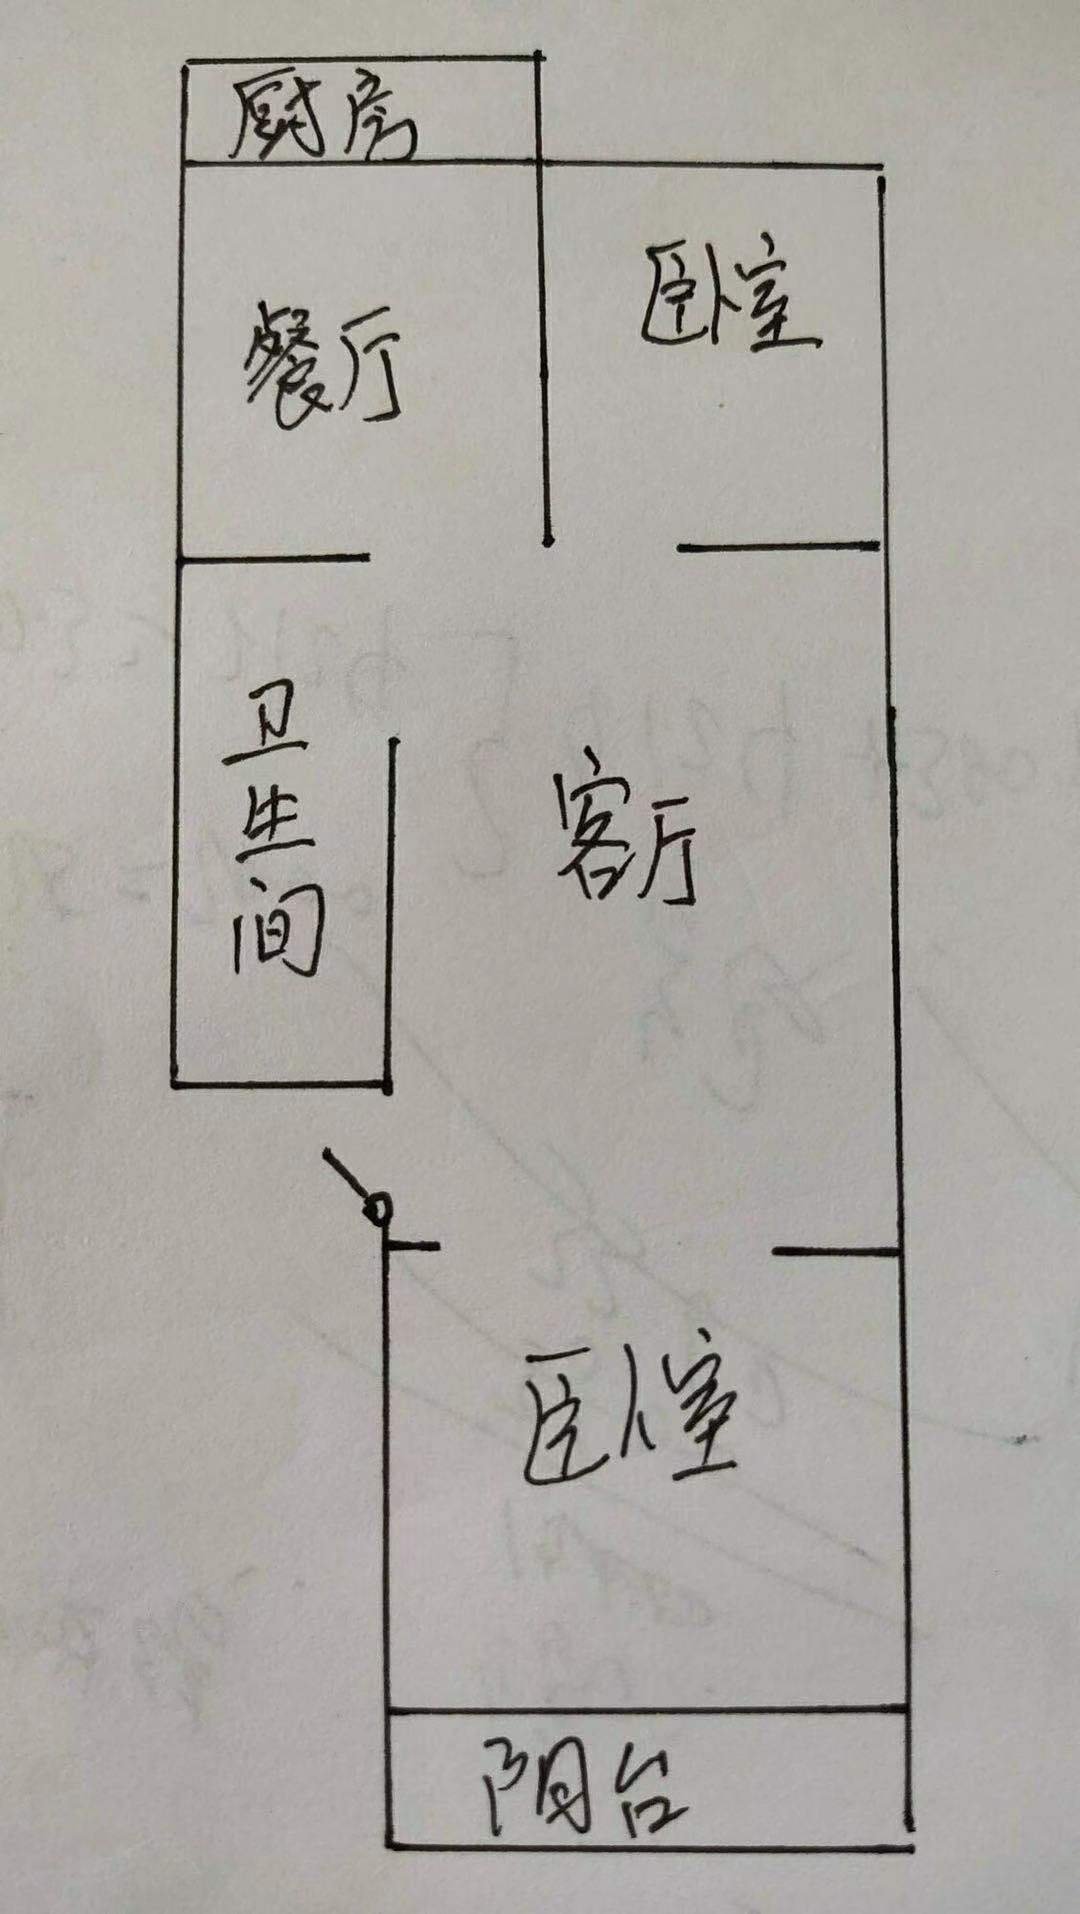 厨房
卧室
餐厅
卫生间
客厅
卧室
阳台